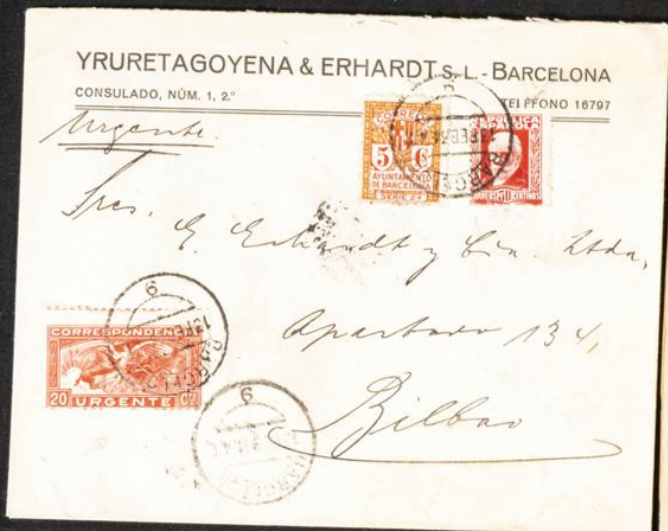 YRURETAGOYENA & ERHARDT S. L. - BARCELONA
CONSULADO, NÚM. 1, 2.º
TELEFONO 16797
Urgente.
CORREOS
5 Cs
AYUNTAMIENTO
DE BARCELONA
SERIE
50
BARCEL
Sres. E. Erhardt y Cía. Ltda,
Apartado 134,
Bilbao
CORRESPONDENCIA
20 URGENTE Cs
BARCELO
9
9
BARCEL